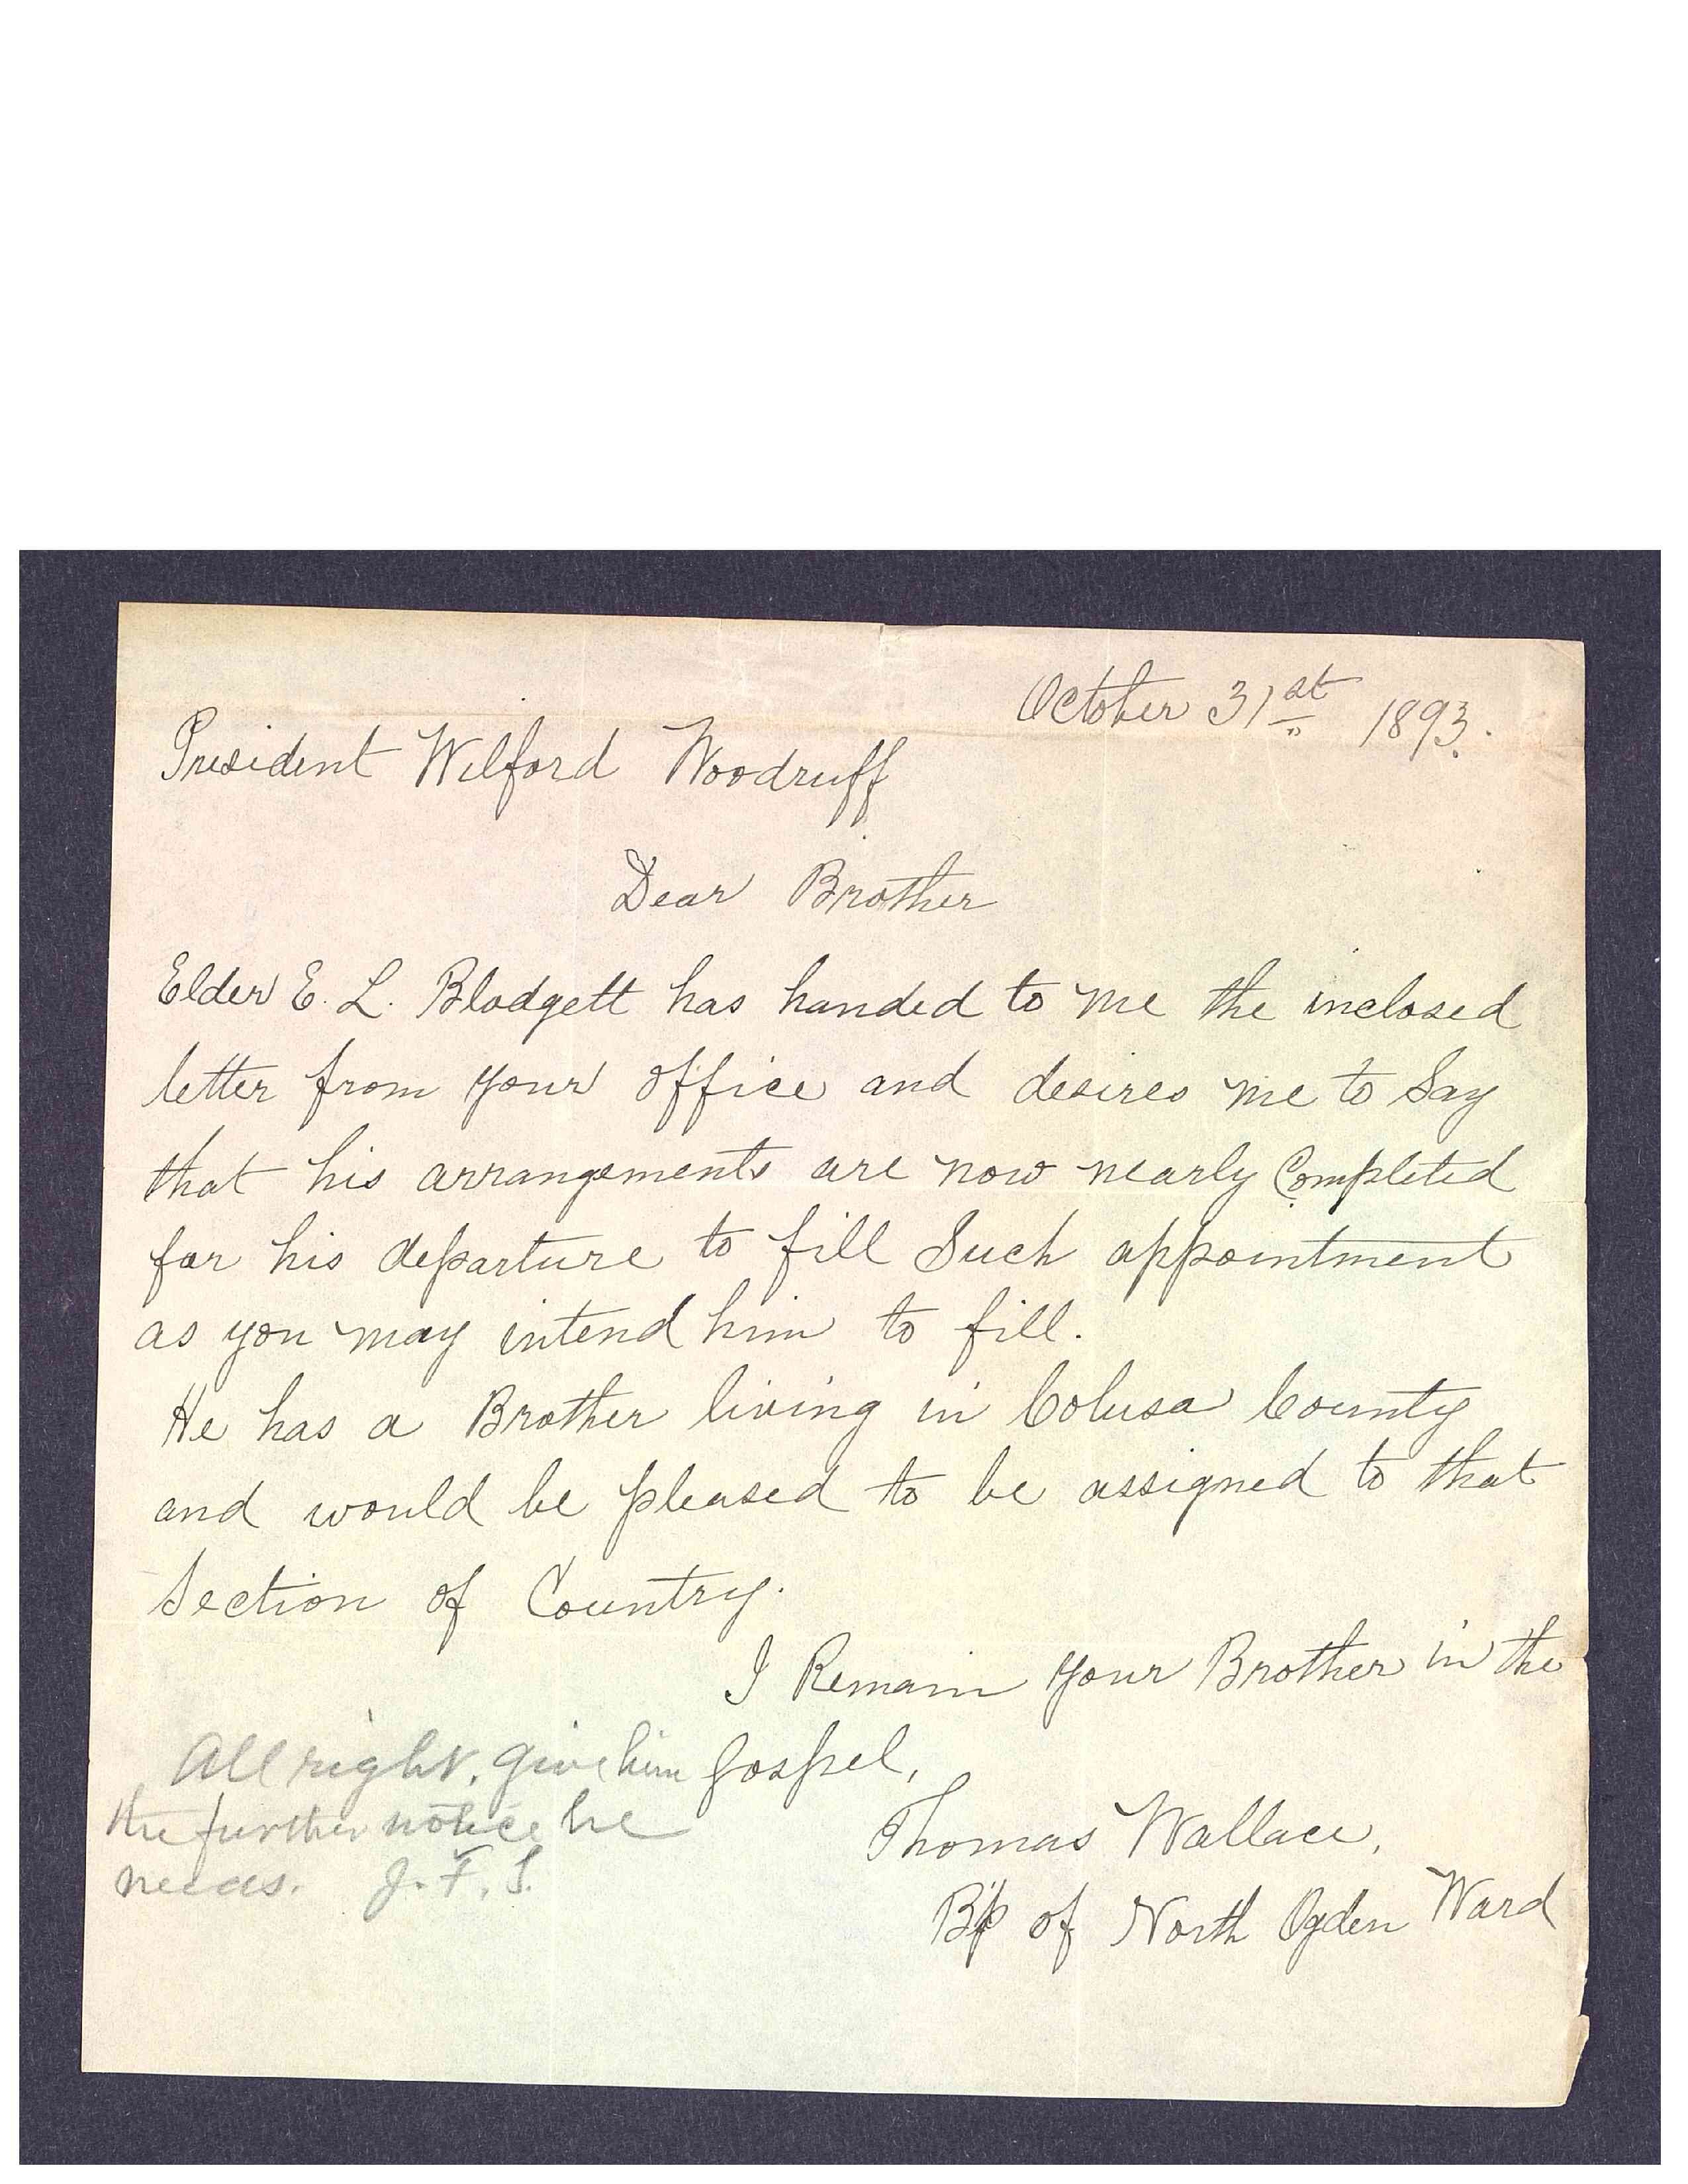 October 31st 1893.
President Wilford Woodruff
Dear Brother
Elder E. L. Blodgett has handed to me the inclosed
letter from your office and desires me to Say
that his arrangements are now nearly Completed
for his departure to fill Such appointment
as you may intend him to fill.
He has a Brother living in Colusa County
and would be pleased to be assigned to that
Section of Country.
I Remain your Brother in the
Gospel,
Thomas Wallace,
B'p of North Ogden Ward
All right, give him
the further notice he
needs. J. F. S.